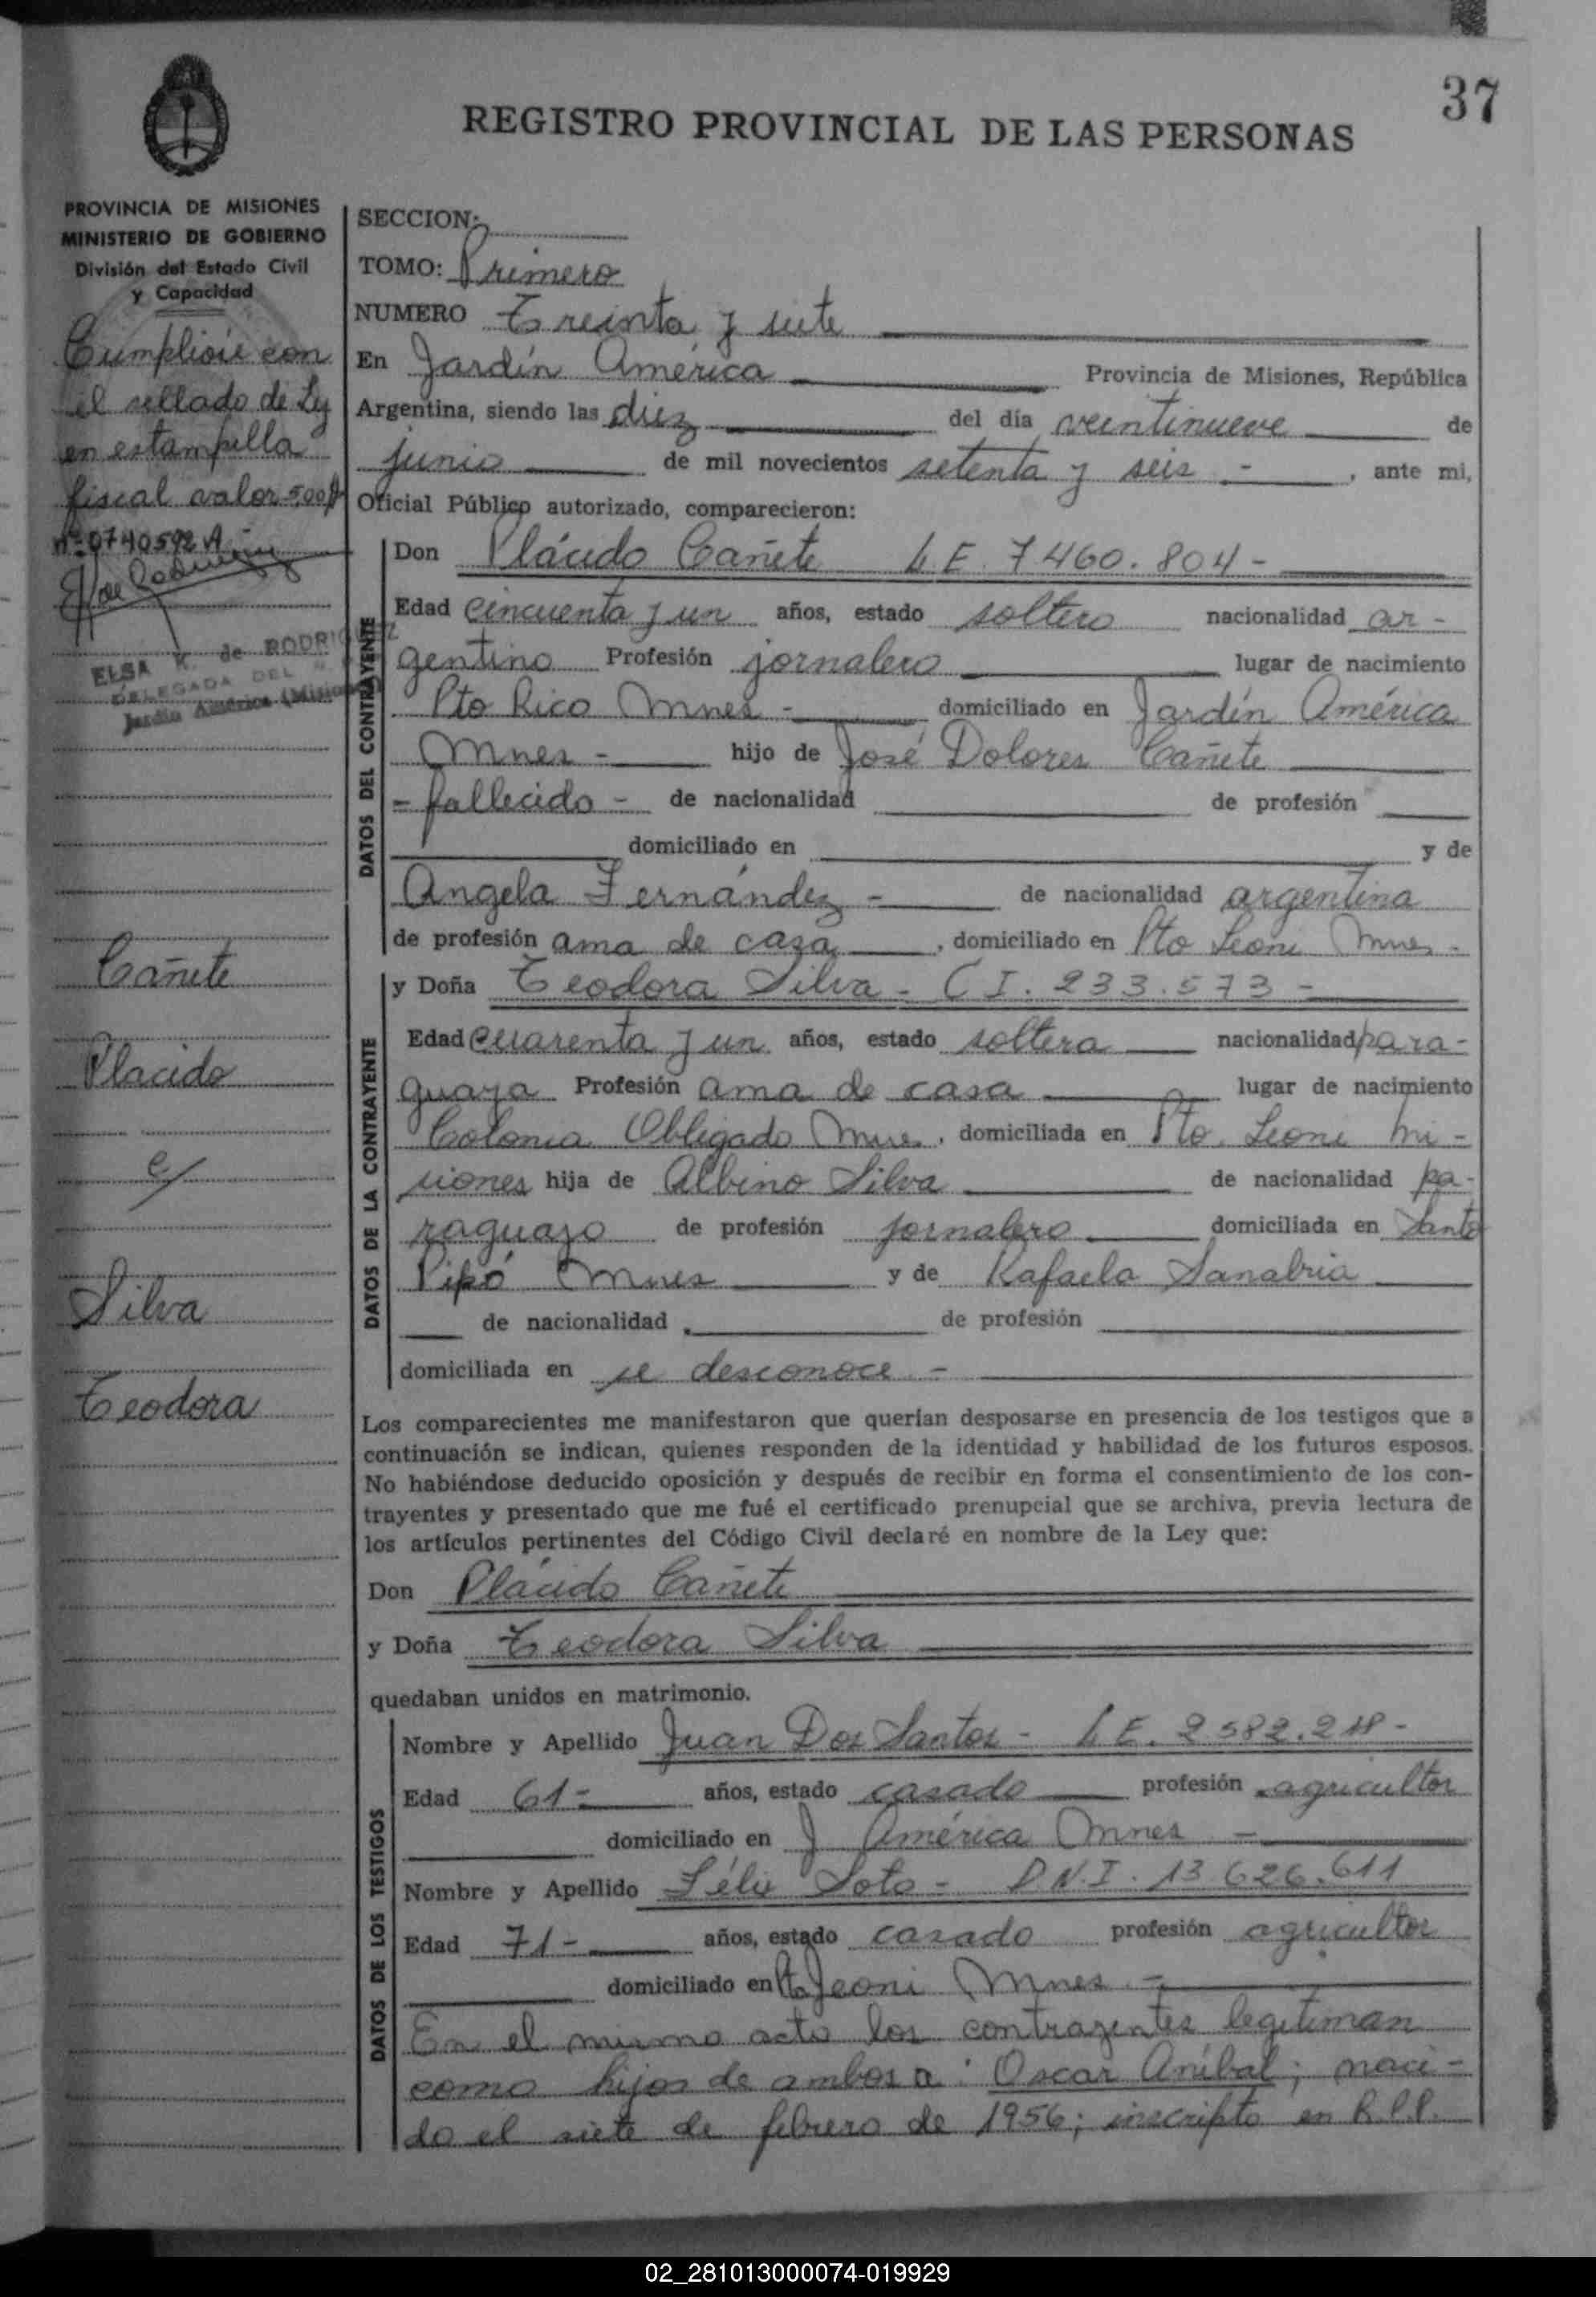 37
REGISTRO PROVINCIAL DE LAS PERSONAS
PROVINCIA DE MISIONES
MINISTERIO DE GOBIERNO
División del Estado Civil
y Capacidad
Cumplióse con
el sellado de Ley
en estampilla
fiscal valor 500$
nº 0740592 A
ELSA K. de RODRIGUEZ
DELEGADA DEL
Jardín América (Misiones)
Cañete
Placido
c/
Silva
Teodora
SECCION:
TOMO: Primero
NUMERO Treinta y siete
En Jardín América Provincia de Misiones, República
Argentina, siendo las diez del día veintinueve de
junio de mil novecientos setenta y seis - , ante mi,
Oficial Público autorizado, comparecieron:
DATOS DEL CONTRAYENTE
Don Plácido Cañete L E. 7460.804 -
Edad cincuenta y un años, estado soltero nacionalidad ar-
gentino Profesión jornalero lugar de nacimiento
Pto Rico Mnes - domiciliado en Jardín América
Mnes - hijo de José Dolores Cañete
- fallecido - de nacionalidad de profesión
domiciliado en y de
Angela Fernández - de nacionalidad argentina
de profesión ama de casa , domiciliado en Pto Leoni Mnes -
DATOS DE LA CONTRAYENTE
y Doña Teodora Silva - C I. 233.573 -
Edad cuarenta y un años, estado soltera nacionalidad para-
guaya Profesión ama de casa lugar de nacimiento
Colonia Obligado Mnes, domiciliada en Pto. Leoni Mi-
siones hija de Albino Silva de nacionalidad pa-
raguayo de profesión jornalero domiciliada en Santo
Pipó Mnes y de Rafaela Sanabria
de nacionalidad de profesión
domiciliada en se desconoce -
Los comparecientes me manifestaron que querían desposarse en presencia de los testigos que a
continuación se indican, quienes responden de la identidad y habilidad de los futuros esposos.
No habiéndose deducido oposición y después de recibir en forma el consentimiento de los con-
trayentes y presentado que me fué el certificado prenupcial que se archiva, previa lectura de
los artículos pertinentes del Código Civil declaré en nombre de la Ley que:
Don Plácido Cañete
y Doña Teodora Silva
quedaban unidos en matrimonio.
DATOS DE LOS TESTIGOS
Nombre y Apellido Juan Dos Santos - L E. 2582.218 -
Edad 61 - años, estado casado profesión agricultor
domiciliado en J América Mnes -
Nombre y Apellido Félix Soto - D.N.I. 13 626.611
Edad 71 - años, estado casado profesión agricultor
domiciliado en Pto Leoni Mnes. -
En el mismo acto los contrayentes legitiman
como hijos de ambos a: Oscar Aníbal; naci-
do el siete de febrero de 1956; inscripto en R.P.P.
02_281013000074-019929